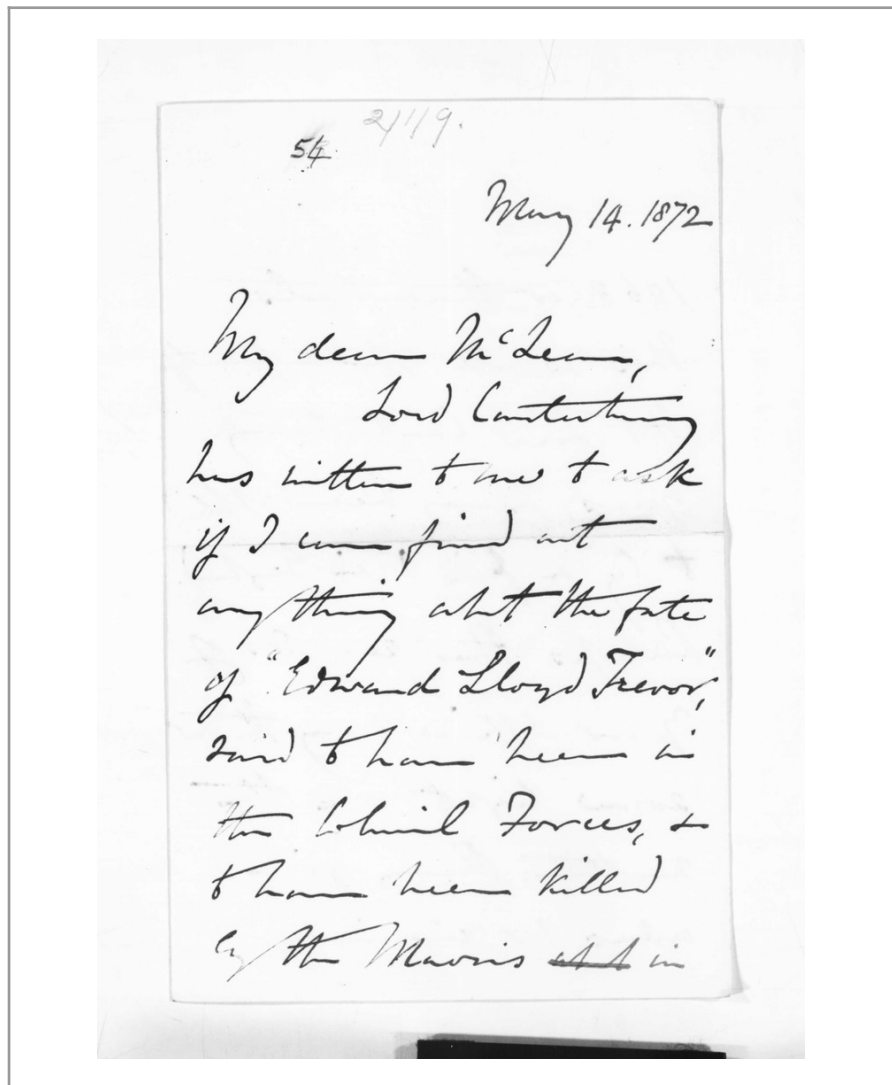 54
2/1/9.
May 14. 1872
My dear McLean,
Lord Canterbury
has written to me to ask
if I can find out
anything abt the fate
of "Edward Lloyd Trevor",
said to have been in
the Colonial Forces, &
to have been killed
by the Maoris in